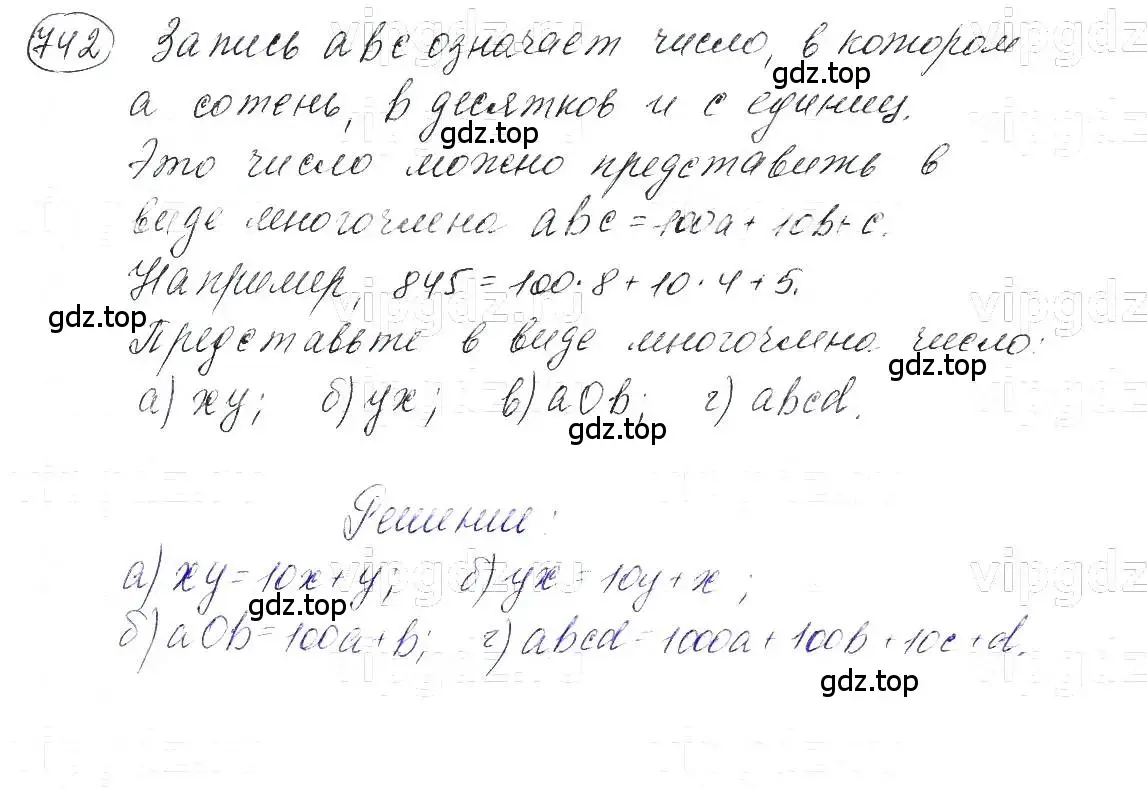 742 Запись abc означает число, в котором
a сотень, b десятков и c единиц.
Это число можно представить в
виде многочлена abc = 100a + 10b + c.
Например, 845 = 100·8 + 10·4 + 5.
Представьте в виде многочлена число:
а) xy; б) yx; в) a0b; г) abcd.
Решение:
а) xy = 10x + y; б) yx = 10y + x;
б) a0b = 100a + b; г) abcd = 1000a + 100b + 10c + d.
gdz.top
gdz.top
gdz.top
gdz.top
gdz.top
gdz.top
gdz.top